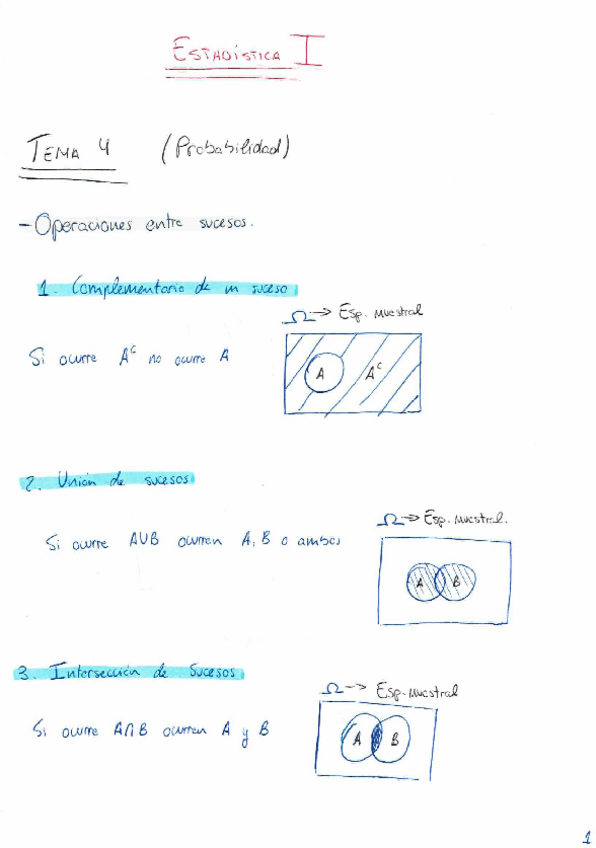 ESTADÍSTICA I
TEMA 4 (Probabilidad)
- Operaciones entre sucesos.
1. Complementario de un suceso
Ω → Esp. muestral
Si ocurre Aᶜ no ocurre A
A Aᶜ
2. Unión de sucesos
Ω → Esp. muestral.
Si ocurre A∪B ocurren A, B o ambos
A B
3. Intersección de sucesos
Ω → Esp. muestral
Si ocurre A∩B ocurren A y B
A B
1